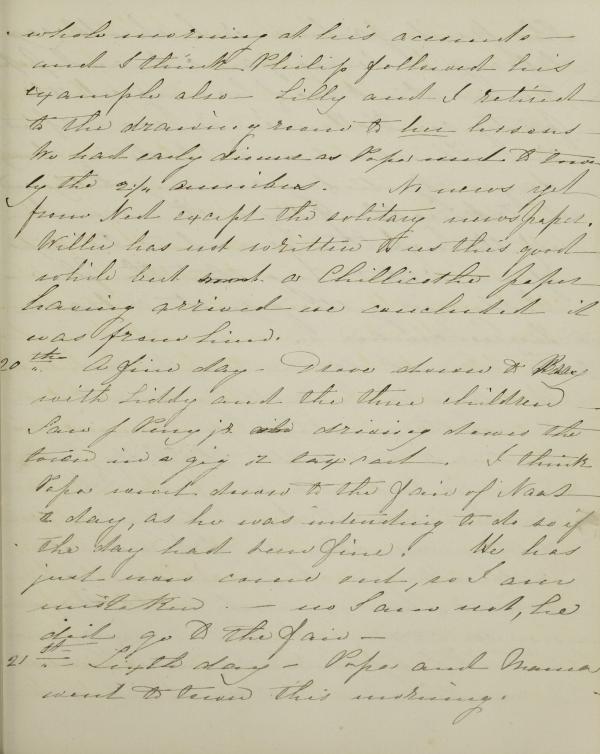 whole morning at his accounts —
and I think Philip followed his
example also — Lilly and I retired
to the drawingroom to her lessons —
We had early dinner as Papa went to town
by the 3¼ omnibus. No news yet
from Ned except the solitary newspaper.
Willie has not written to us this good
while but a Chillicothe paper
having arrived we concluded it
was from him.
20th A fine day — Drove down to Bray
with Liddy and the three children —
Saw J Pim jr driving down the
town in a gig or tax cart. I think
Papa went down to the fair of Naas
to day, as he was intending to do so if
the day had been fine. He has
just now come out, so I am
mistaken — no I am not, he
did go to the fair —
21st Sixth day — Papa and Mama
went to town this morning.